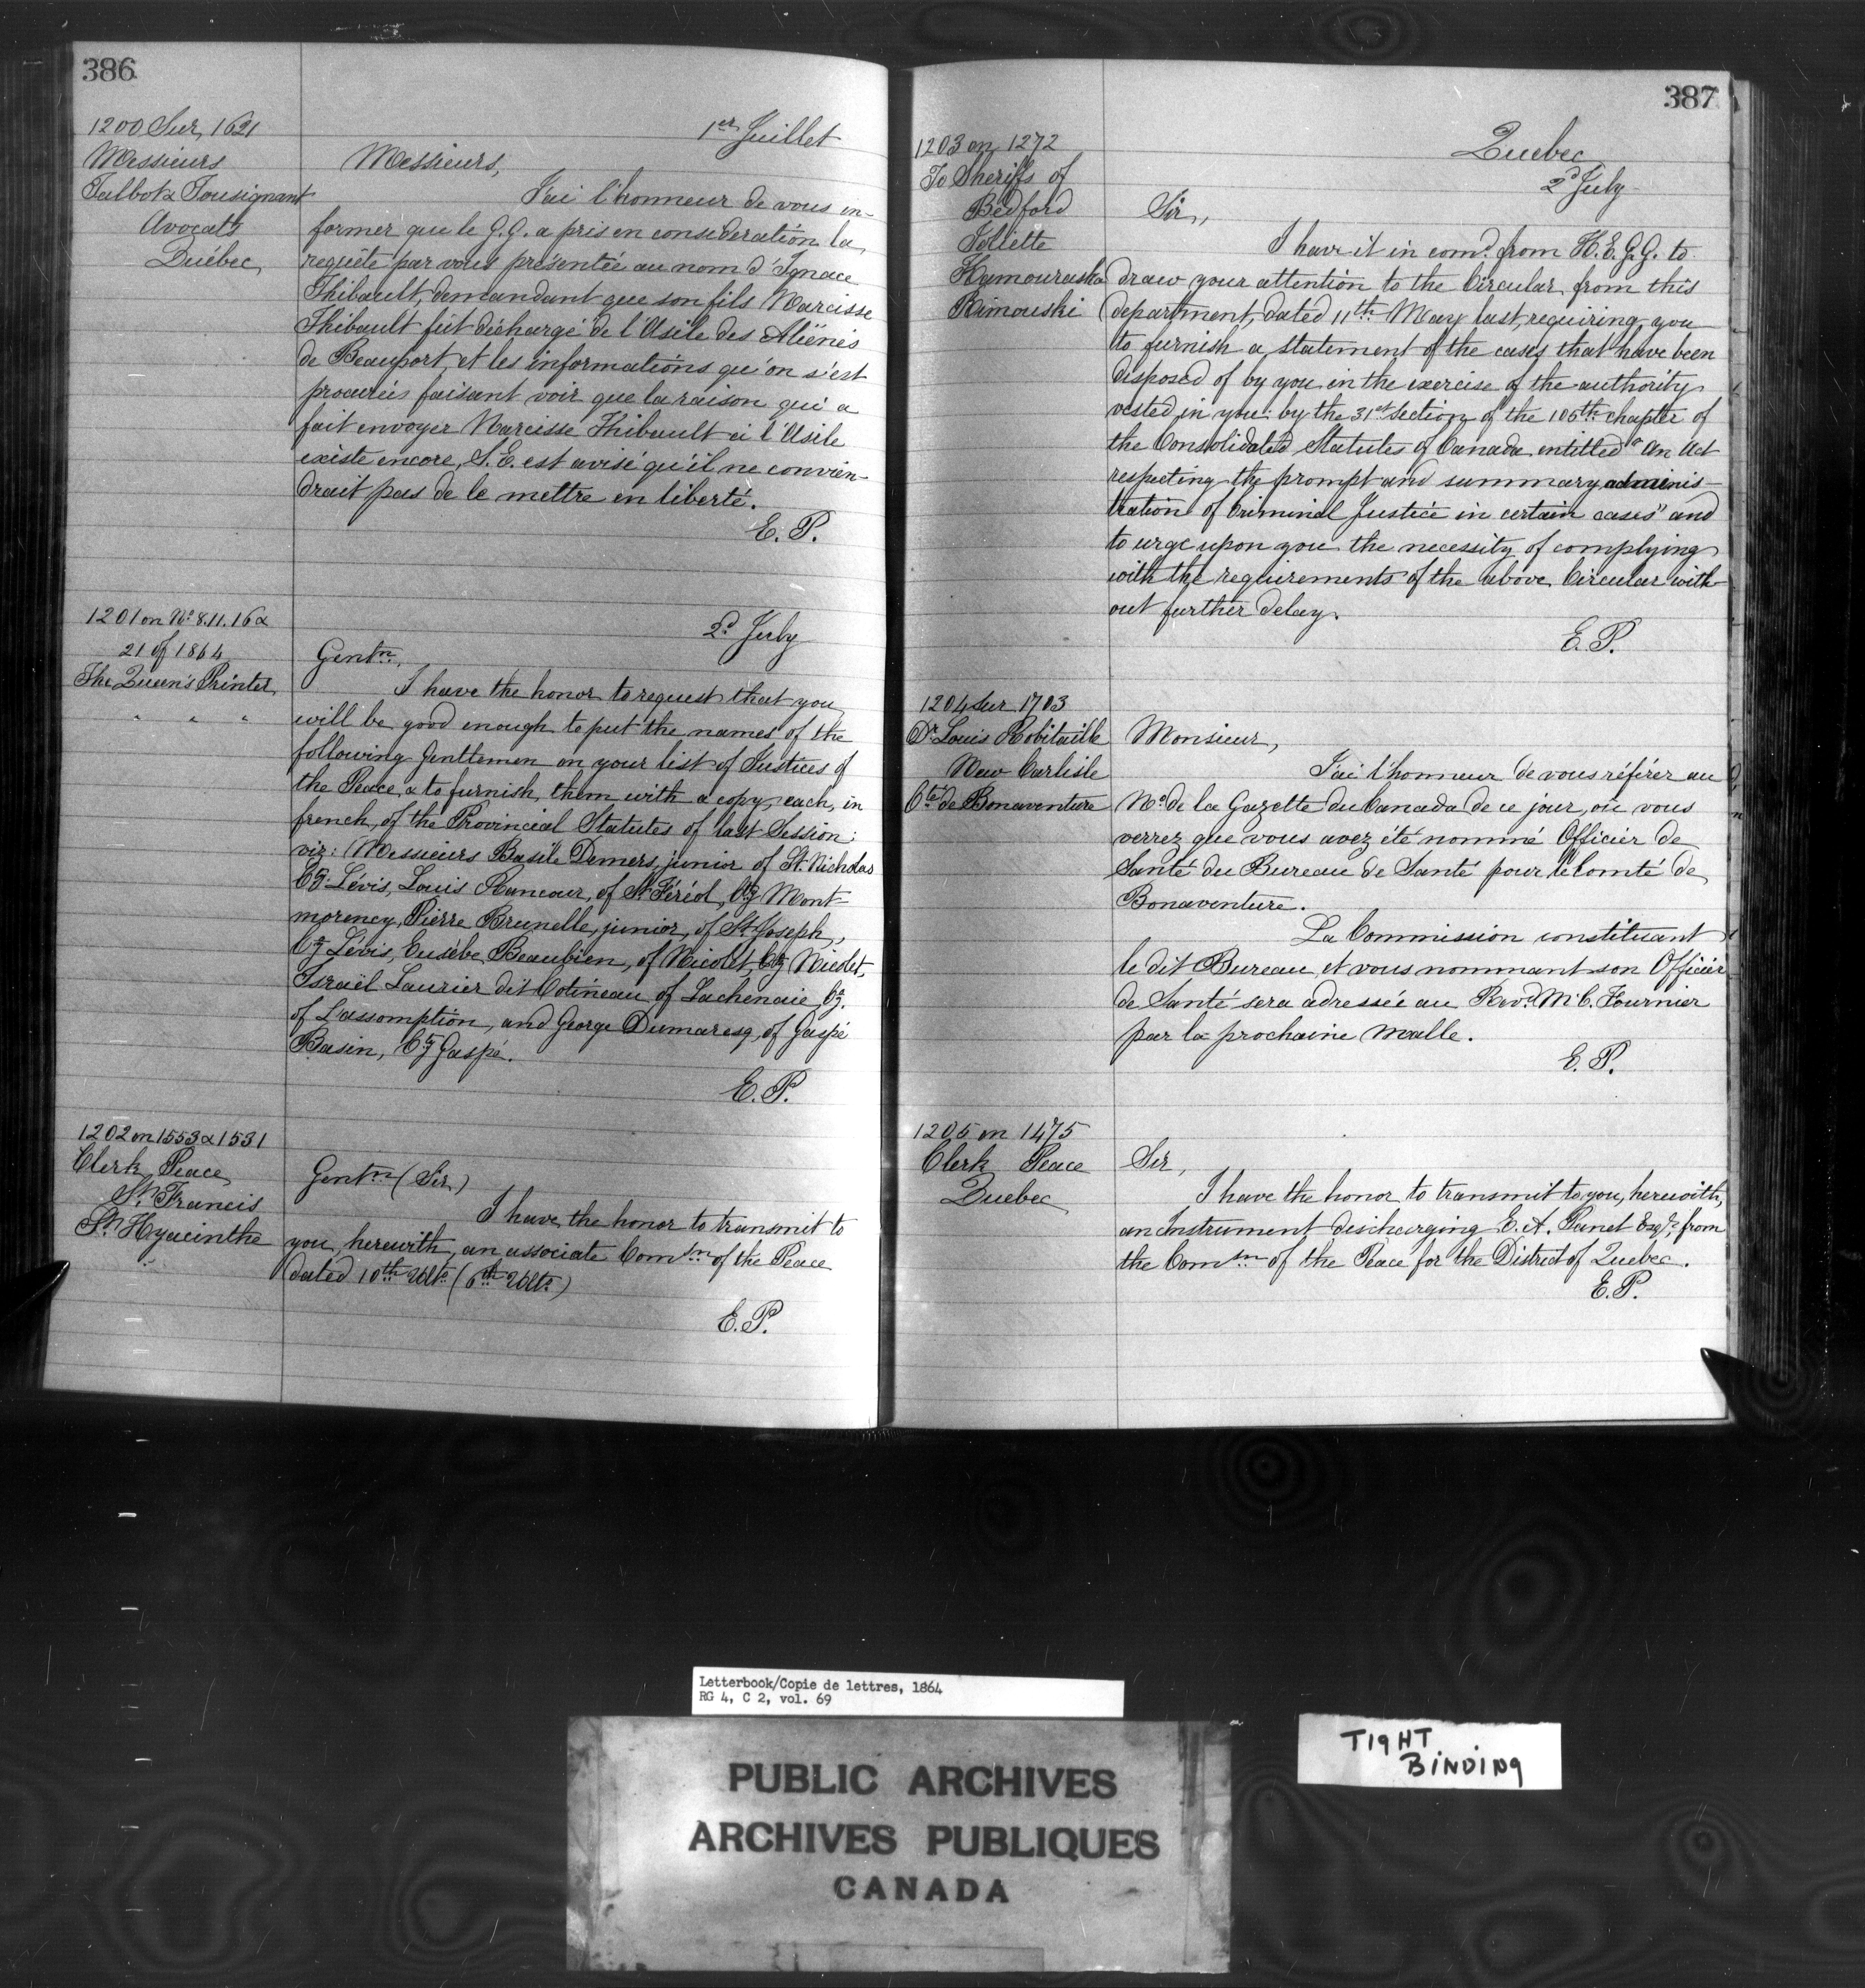 386
1200 Sur, 1621
Messieurs
Talbot & Tousignant
Avocats
Québec,
1er Juillet
Messieurs,
J'ai l'honneur de vous in-
former que le G.G. a pris en consideration la
requête par vous présentée au nom d'Ignace
Thibault, demandant que son fils Narcisse
Thibault fût déchargé de l'Asile des Aliénés
de Beauport, et les informations qu'on s'est
procurées faisant voir que la raison qui a
fait envoyer Narcisse Thibault à l'Asile
existe encore, S.E. est avisé qu'il ne convien-
drait pas de le mettre en liberté.
E.P.
1201 on No 8.11.16 &
21 of 1864
The Queen's Printer
" " "
2d July
Gentn,
I have the honor to request that you
will be good enough to put the names of the
following Gentlemen on your list of Justices of
the Peace, & to furnish them with a copy each, in
french, of the Provincial Statutes of last Session:
viz: Messieurs Basile Demers, junior of St. Nicholas
Cy. Lévis, Louis Rancour, of St Féréol, Cy Mont-
morency, Pierre Brunelle, junior, of St. Joseph,
Cy Lévis, Eusèbe Beaubien, of Nicolet, Cy Nicolet,
Israël Laurier dit Cotineau of Lachenaie, Cy.
of L'assomption, and George Dumaresq, of Gaspé
Basin, Cy Gaspé.
E.P.
1202 on 1553 & 1531
Clerk Peace
St. Francis
St. Hyacinthe
Gentn (Sir)
I have the honor to transmit to
you, herewith, an associate Comsn of the Peace
dated 10th Ulto. (6th Ulto.)
E.P.
387
1203 on 1272
To Sheriffs of
Bedford
Joliette
Kamouraska
Rimouski
Quebec
2d July
Sir,
I have it in comd. from H.E.G.G. to
draw your attention to the Circular from this
department, dated 11th May last, requiring you
to furnish a statement of the cases that have been
disposed of by you in the exercise of the authority
vested in you: by the 31st Section of the 105th chapter of
the Consolidated Statutes of Canada entitled "An Act
respecting the prompt and summary adminis-
tration of Criminal Justice in certain cases" and
to urge upon you the necessity of complying
with the requirements of the above Circular with-
out further delay.
E.P.
1204 Sur 1703
Dr Louis Robitaille
New Carlisle
Cté de Bonaventure
Monsieur,
J'ai l'honneur de vous référer au
No. de la Gazette du Canada de ce jour, où vous
verrez que vous avez été nommé Officier de
Santé du Bureau de Santé pour le Comté de
Bonaventure.
La Commission constituant
le dit Bureau, et vous nommant son Officier
de Santé sera adressée au Revd. M C. Fournier
par la prochaine malle.
E.P.
1205 on 1475
Clerk Peace
Quebec
Sir,
I have the honor to transmit to you, herewith,
an Instrument discharging E. A. Panet Esqr. from
the Comsn of the Peace for the District of Quebec.
E.P.
Letterbook/Copie de lettres, 1864
RG 4, C 2, vol. 69
PUBLIC ARCHIVES
ARCHIVES PUBLIQUES
CANADA
TIGHT
BINDING